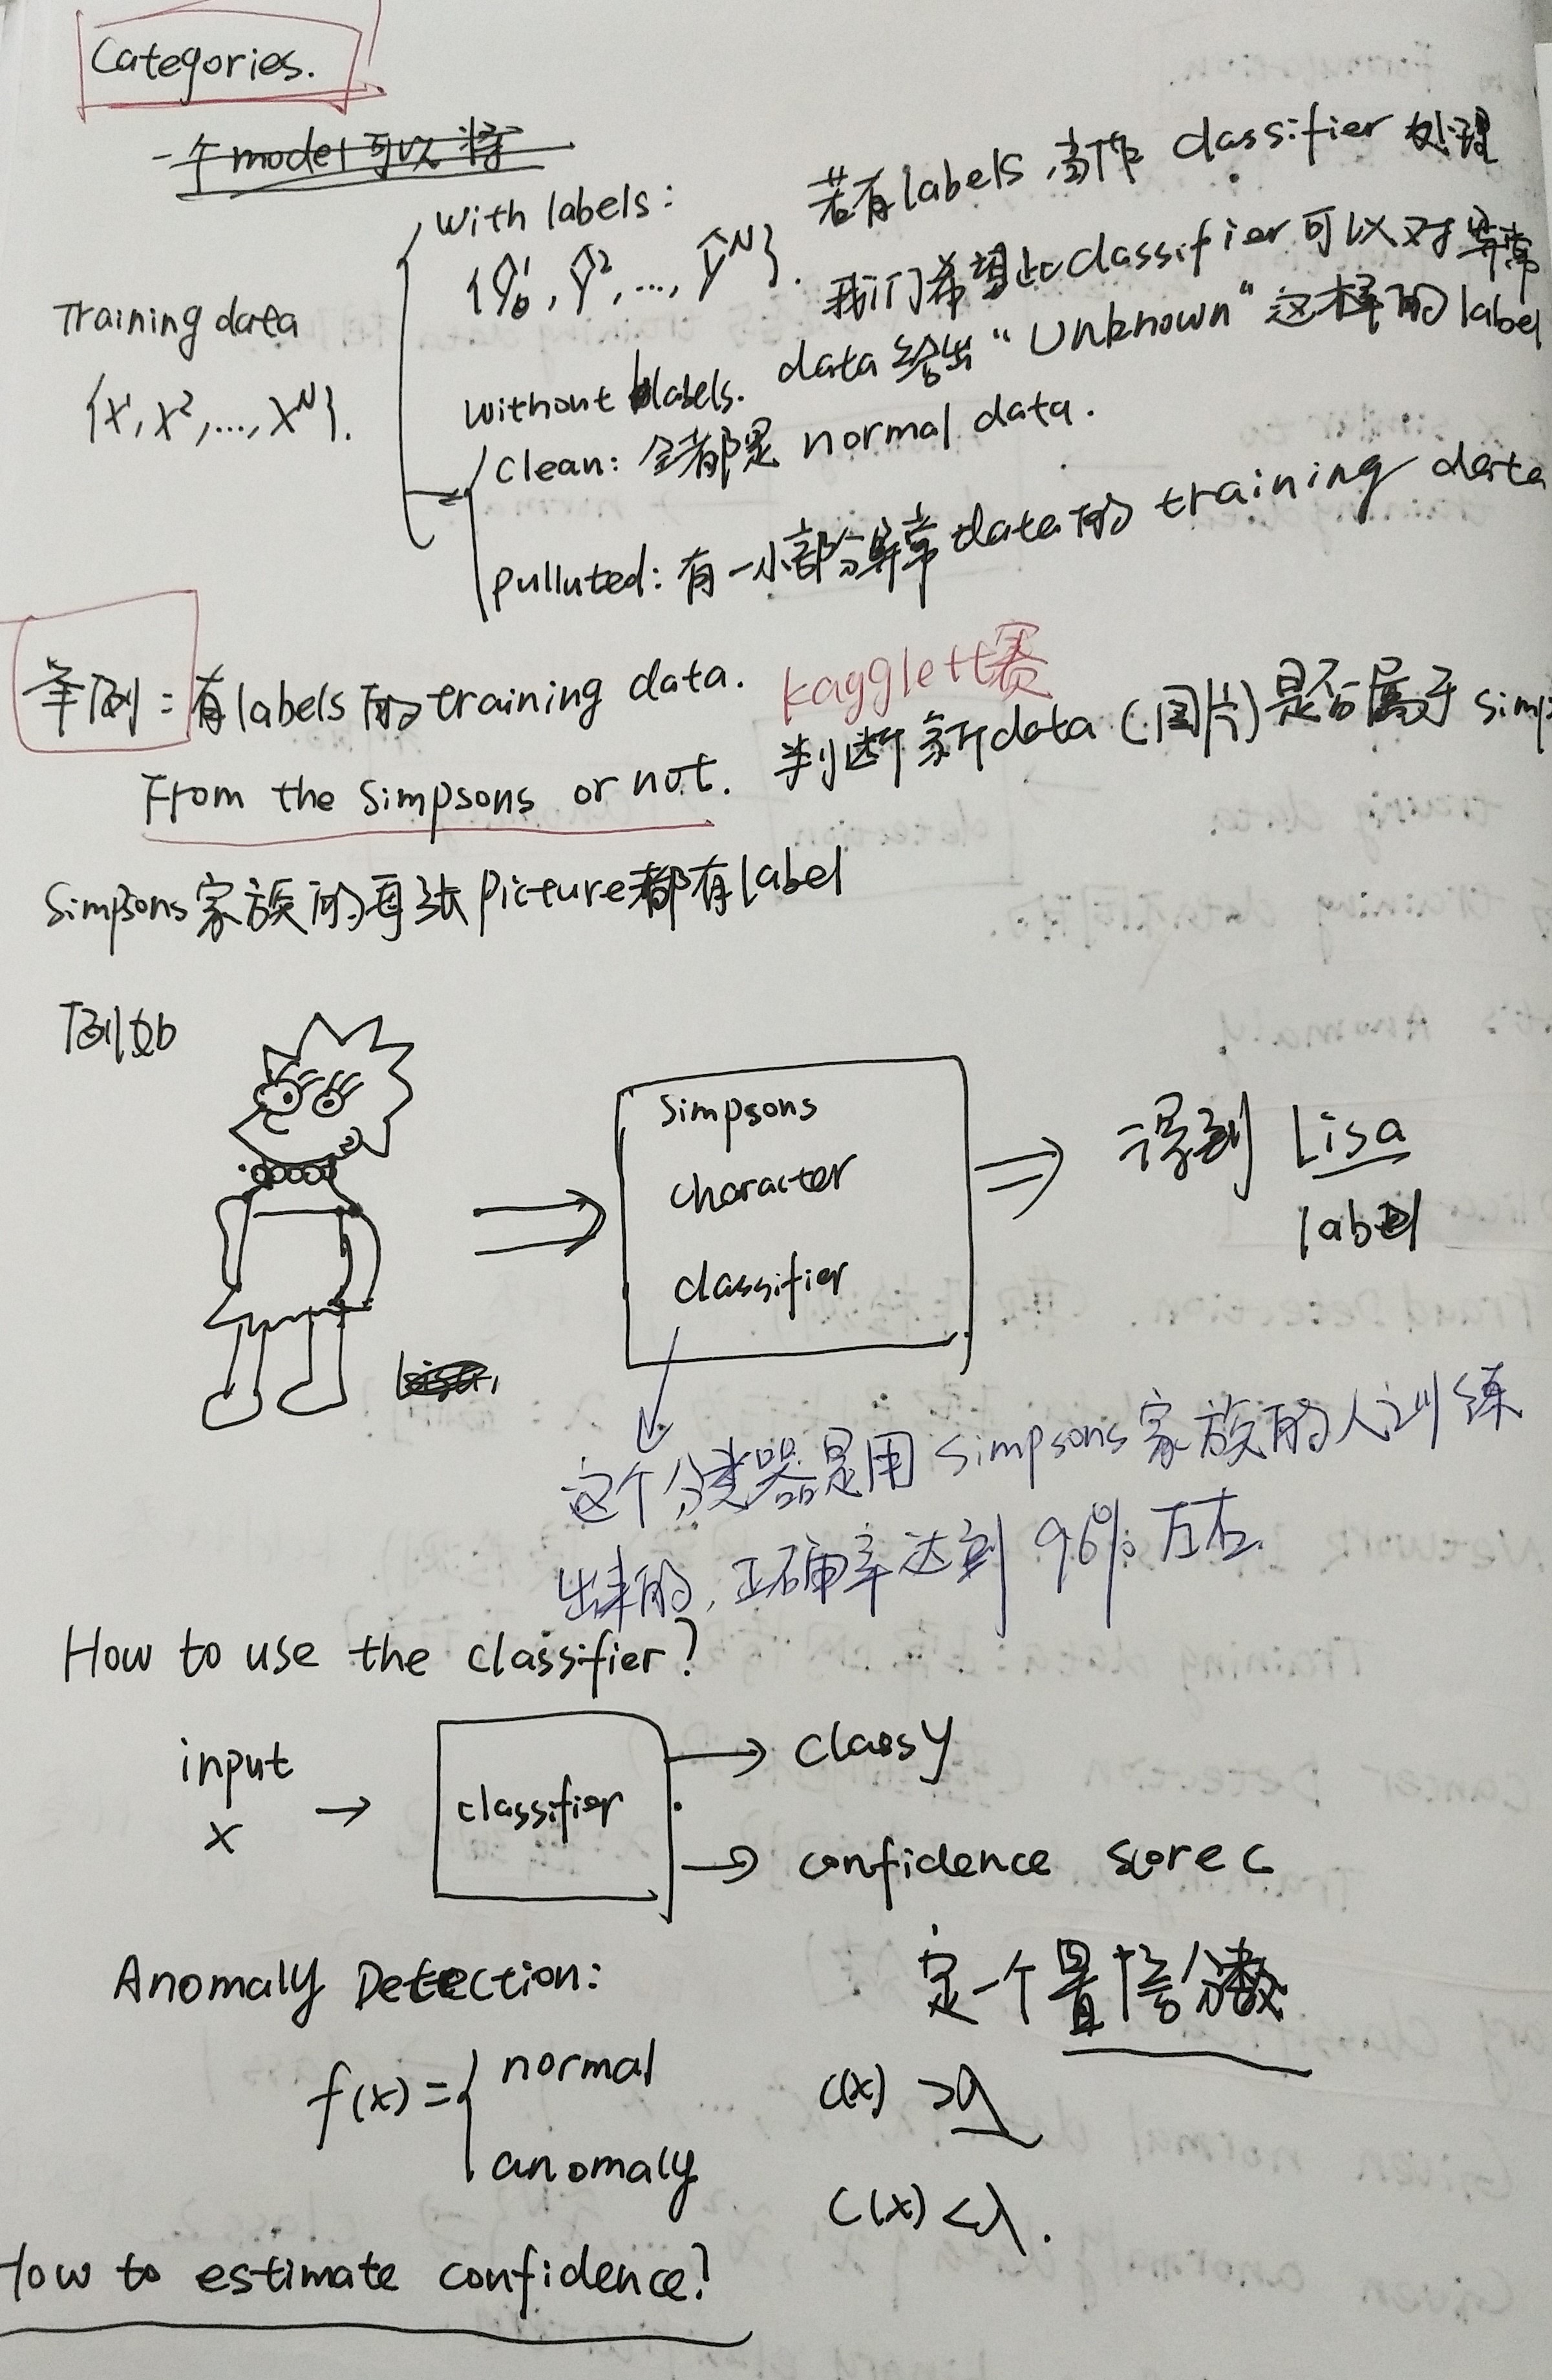 Categories.
一个model可以将
With labels:
{ŷ¹, ŷ², ..., ŷᴺ}.
若有labels,当作 classifier 处理
我们希望此classifier 可以对异常
data 给出 "Unknown" 这样的 label
Training data
{x¹, x², ..., xᴺ}.
without labels.
clean: 全都是 normal data.
pulluted: 有一小部分异常data的 training data
举例: 有labels的training data.
kaggle比赛
From the Simpsons or not.
判断新data (图片) 是否属于 simp
Simpsons家族的每张picture都有label
例如
Simpsons
character
classifier
得到 Lisa
label
这个分类器是用 simpsons家族的人训练
出来的, 正确率达到 96% 左右.
How to use the classifier?
input
x
classifier
class y
confidence score c
Anomaly Detection:
定一个置信分数
f(x) = { normal c(x) > λ
anomaly c(x) < λ.
How to estimate confidence?